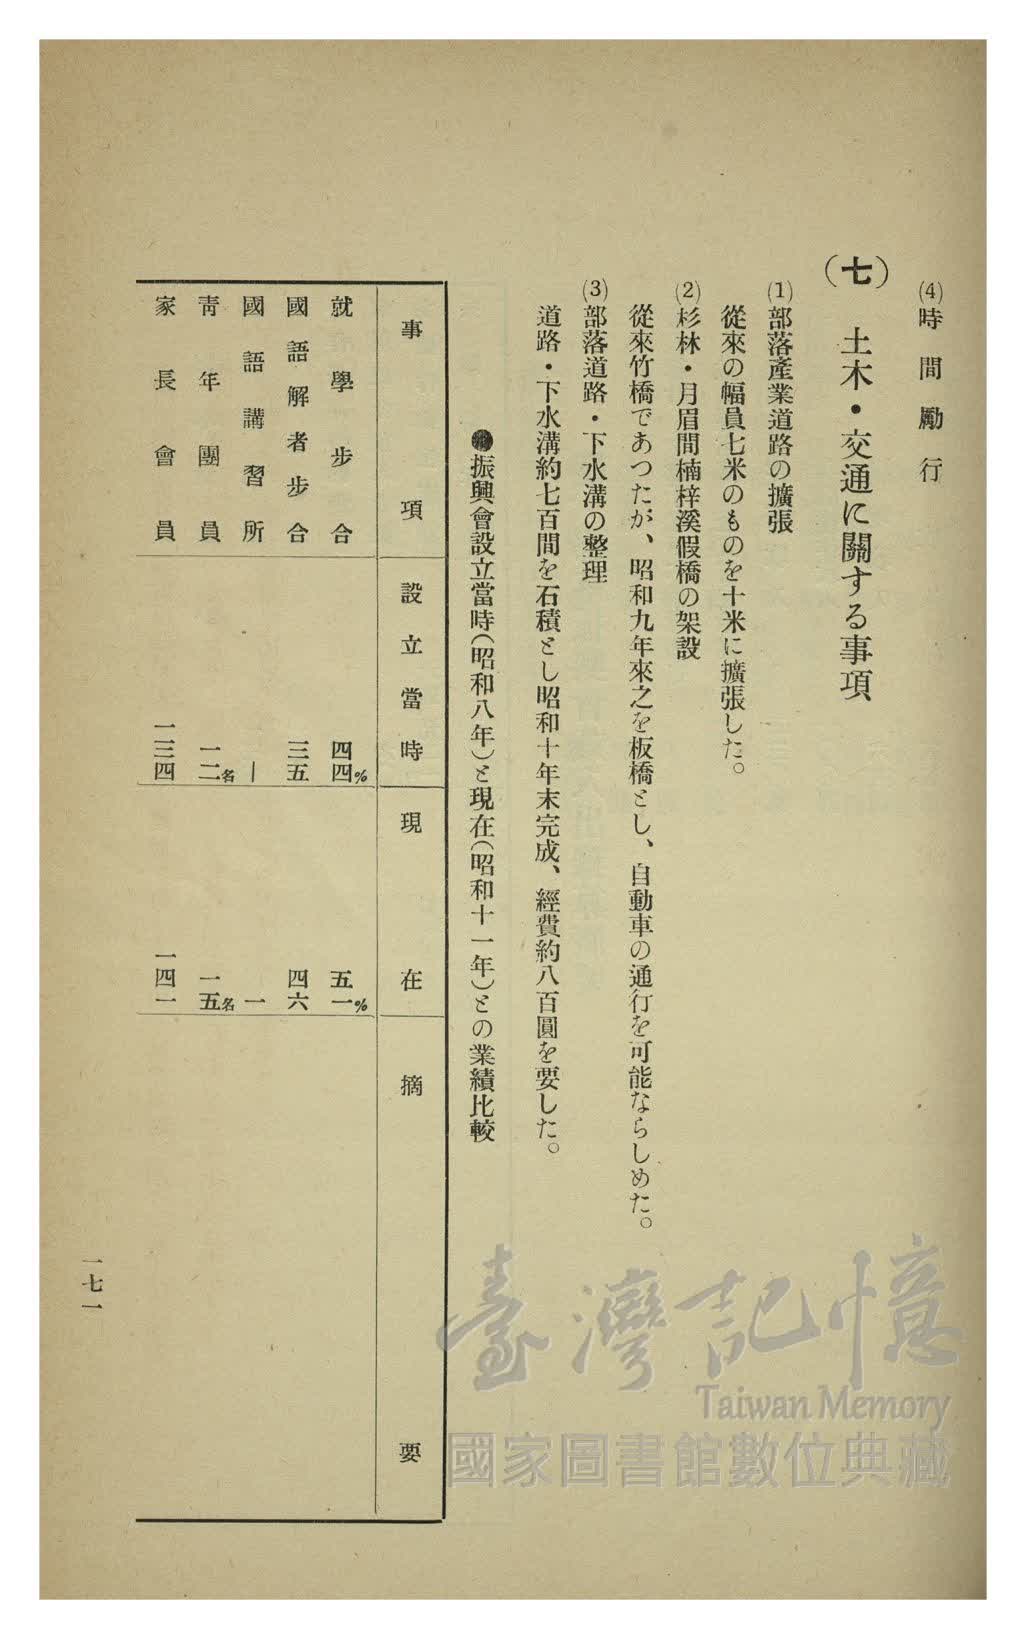 (4)時間勵行
(七)　土木・交通に關する事項
(1)部落產業道路の擴張
從來の幅員七米のものを十米に擴張した。
(2)杉林・月眉間楠梓溪假橋の架設
從來竹橋であつたが、昭和九年來之を板橋とし、自動車の通行を可能ならしめた。
(3)部落道路・下水溝の整理
道路・下水溝約七百間を石積とし昭和十年末完成、經費約八百圓を要した。
●振興會設立當時(昭和八年)と現在(昭和十一年)との業績比較
事項　設立當時　現在　摘要
就學步合　四四%　五一%
國語解者步合　三五　四六
國語講習所　｜　一
靑年團員　一二名　一五名
家長會員　一三四　一四一
一七一
臺灣記憶
Taiwan Memory
國家圖書館數位典藏